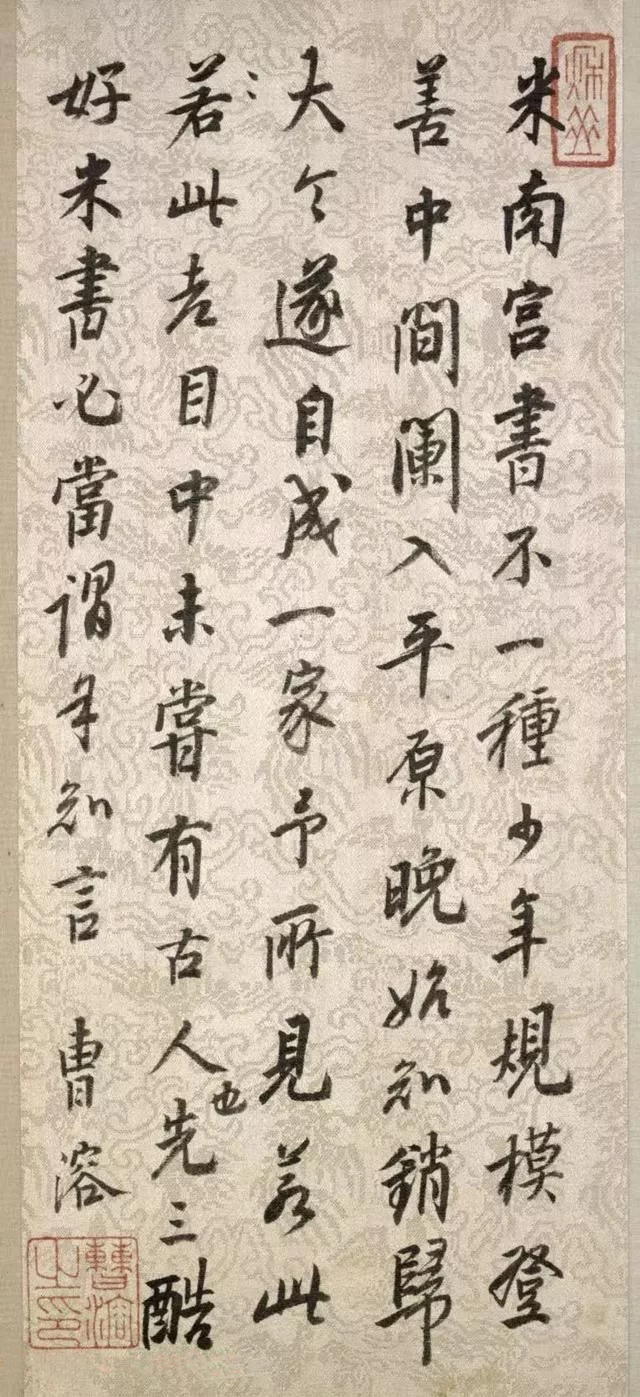 秋岳
米南宫書不一種少年規模登
善中間闌入平原晚始知銷歸
大令遂自成一家予所見若此
若此老目中未嘗有古人也先三酷
好米書必當謂予知言 曹溶
曹溶之印